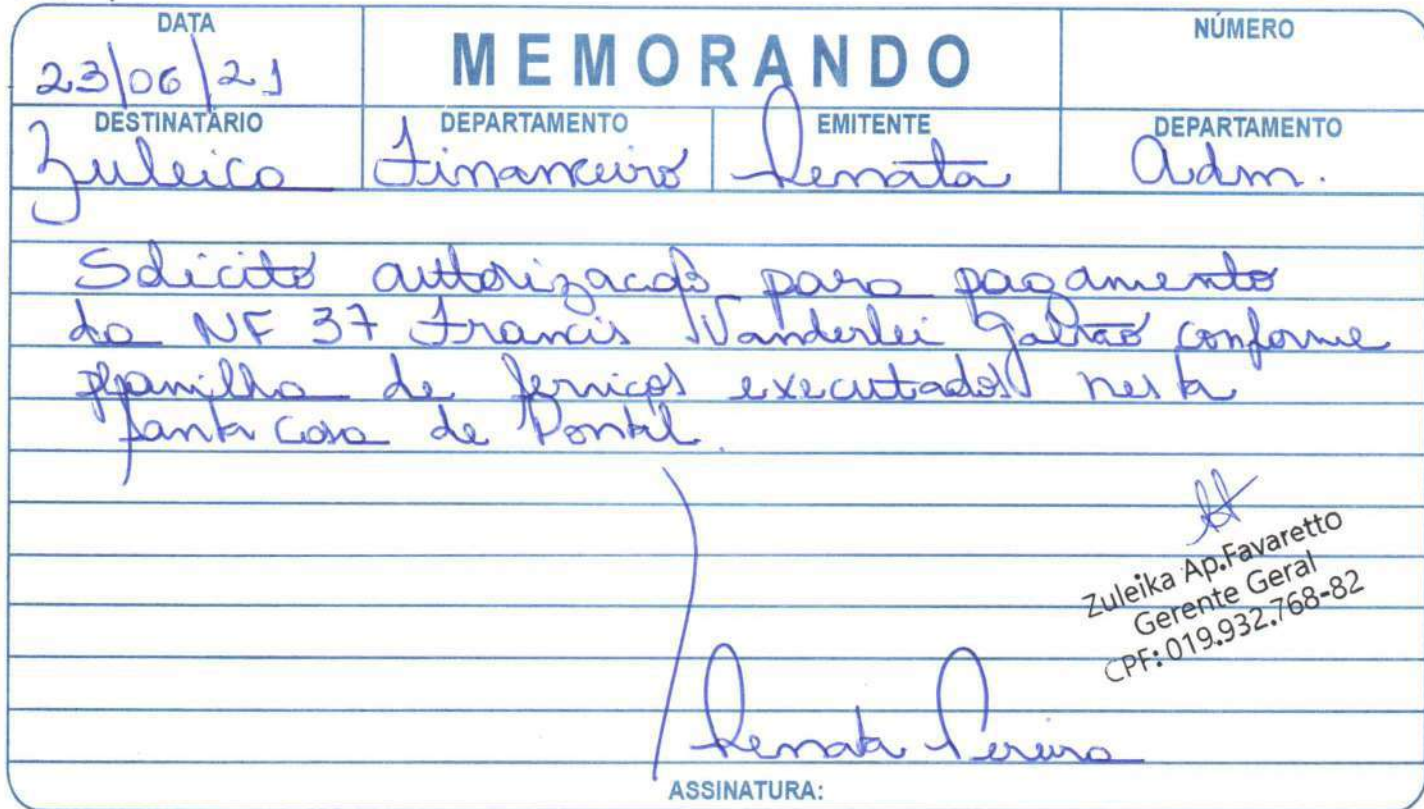 DATA
MEMORANDO
NÚMERO
23/06/21
DESTINATÁRIO DEPARTAMENTO EMITENTE DEPARTAMENTO
Zuleica Financeiro Renata Adm.
Solicito autorização para pagamento
da NF 37 Francis Vanderlei Galvão conforme
planilha de serviços executados nesta
Santa Casa de Pontal.
Zuleika Ap.Favaretto
Gerente Geral
CPF: 019.932.768-82
Renata Pereira
ASSINATURA: